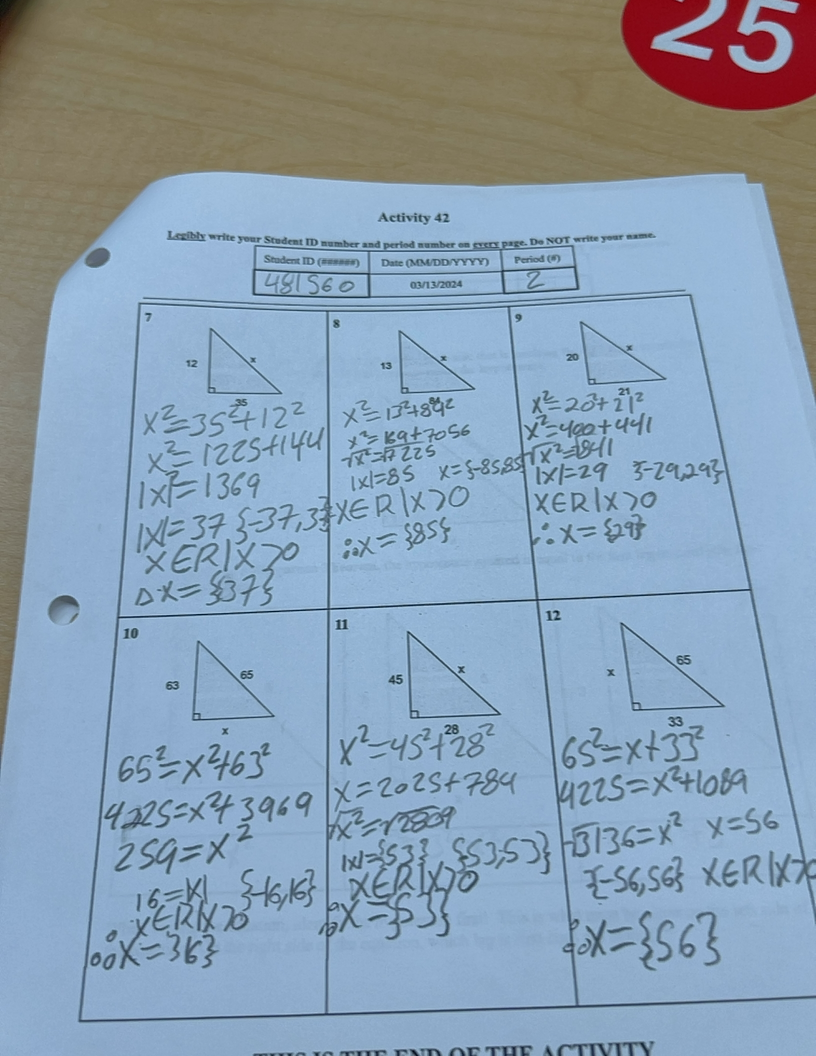 25
Activity 42
Legibly write your Student ID number and period number on every page. Do NOT write your name.
Student ID (######) Date (MM/DD/YYYY) Period (#)
481560 03/13/2024 2
7
12
x
35
x²=35²+12²
x²=1225+144
|x|²=1369
|x|=37 {-37,37}
x∈R|x>0
x={37}
8
13
x
84
x²=13²+84²
x²=169+7056
√x²=√7225
|x|=85 x={-85,85}
x∈R|x>0
∴x={85}
9
20
x
21
x²=20²+21²
x²=400+441
√x²=√841
|x|=29 {-29,29}
x∈R|x>0
∴x={29}
10
63
65
x
65²=x²+63²
4225=x²+3969
259=x²
16=|x| {-16,16}
x∈R|x>0
11
45
x
28
x²=45²+28²
x=2025+784
√x²=√2809
|x|={53} {53,53}
x∈R|x>0
∴x={53}
12
x
65
33
65²=x+33²
4225=x²+1089
√3136=x² x=56
{-56,56} x∈R|x>0
∴x={56}
THIS IS THE END OF THE ACTIVITY